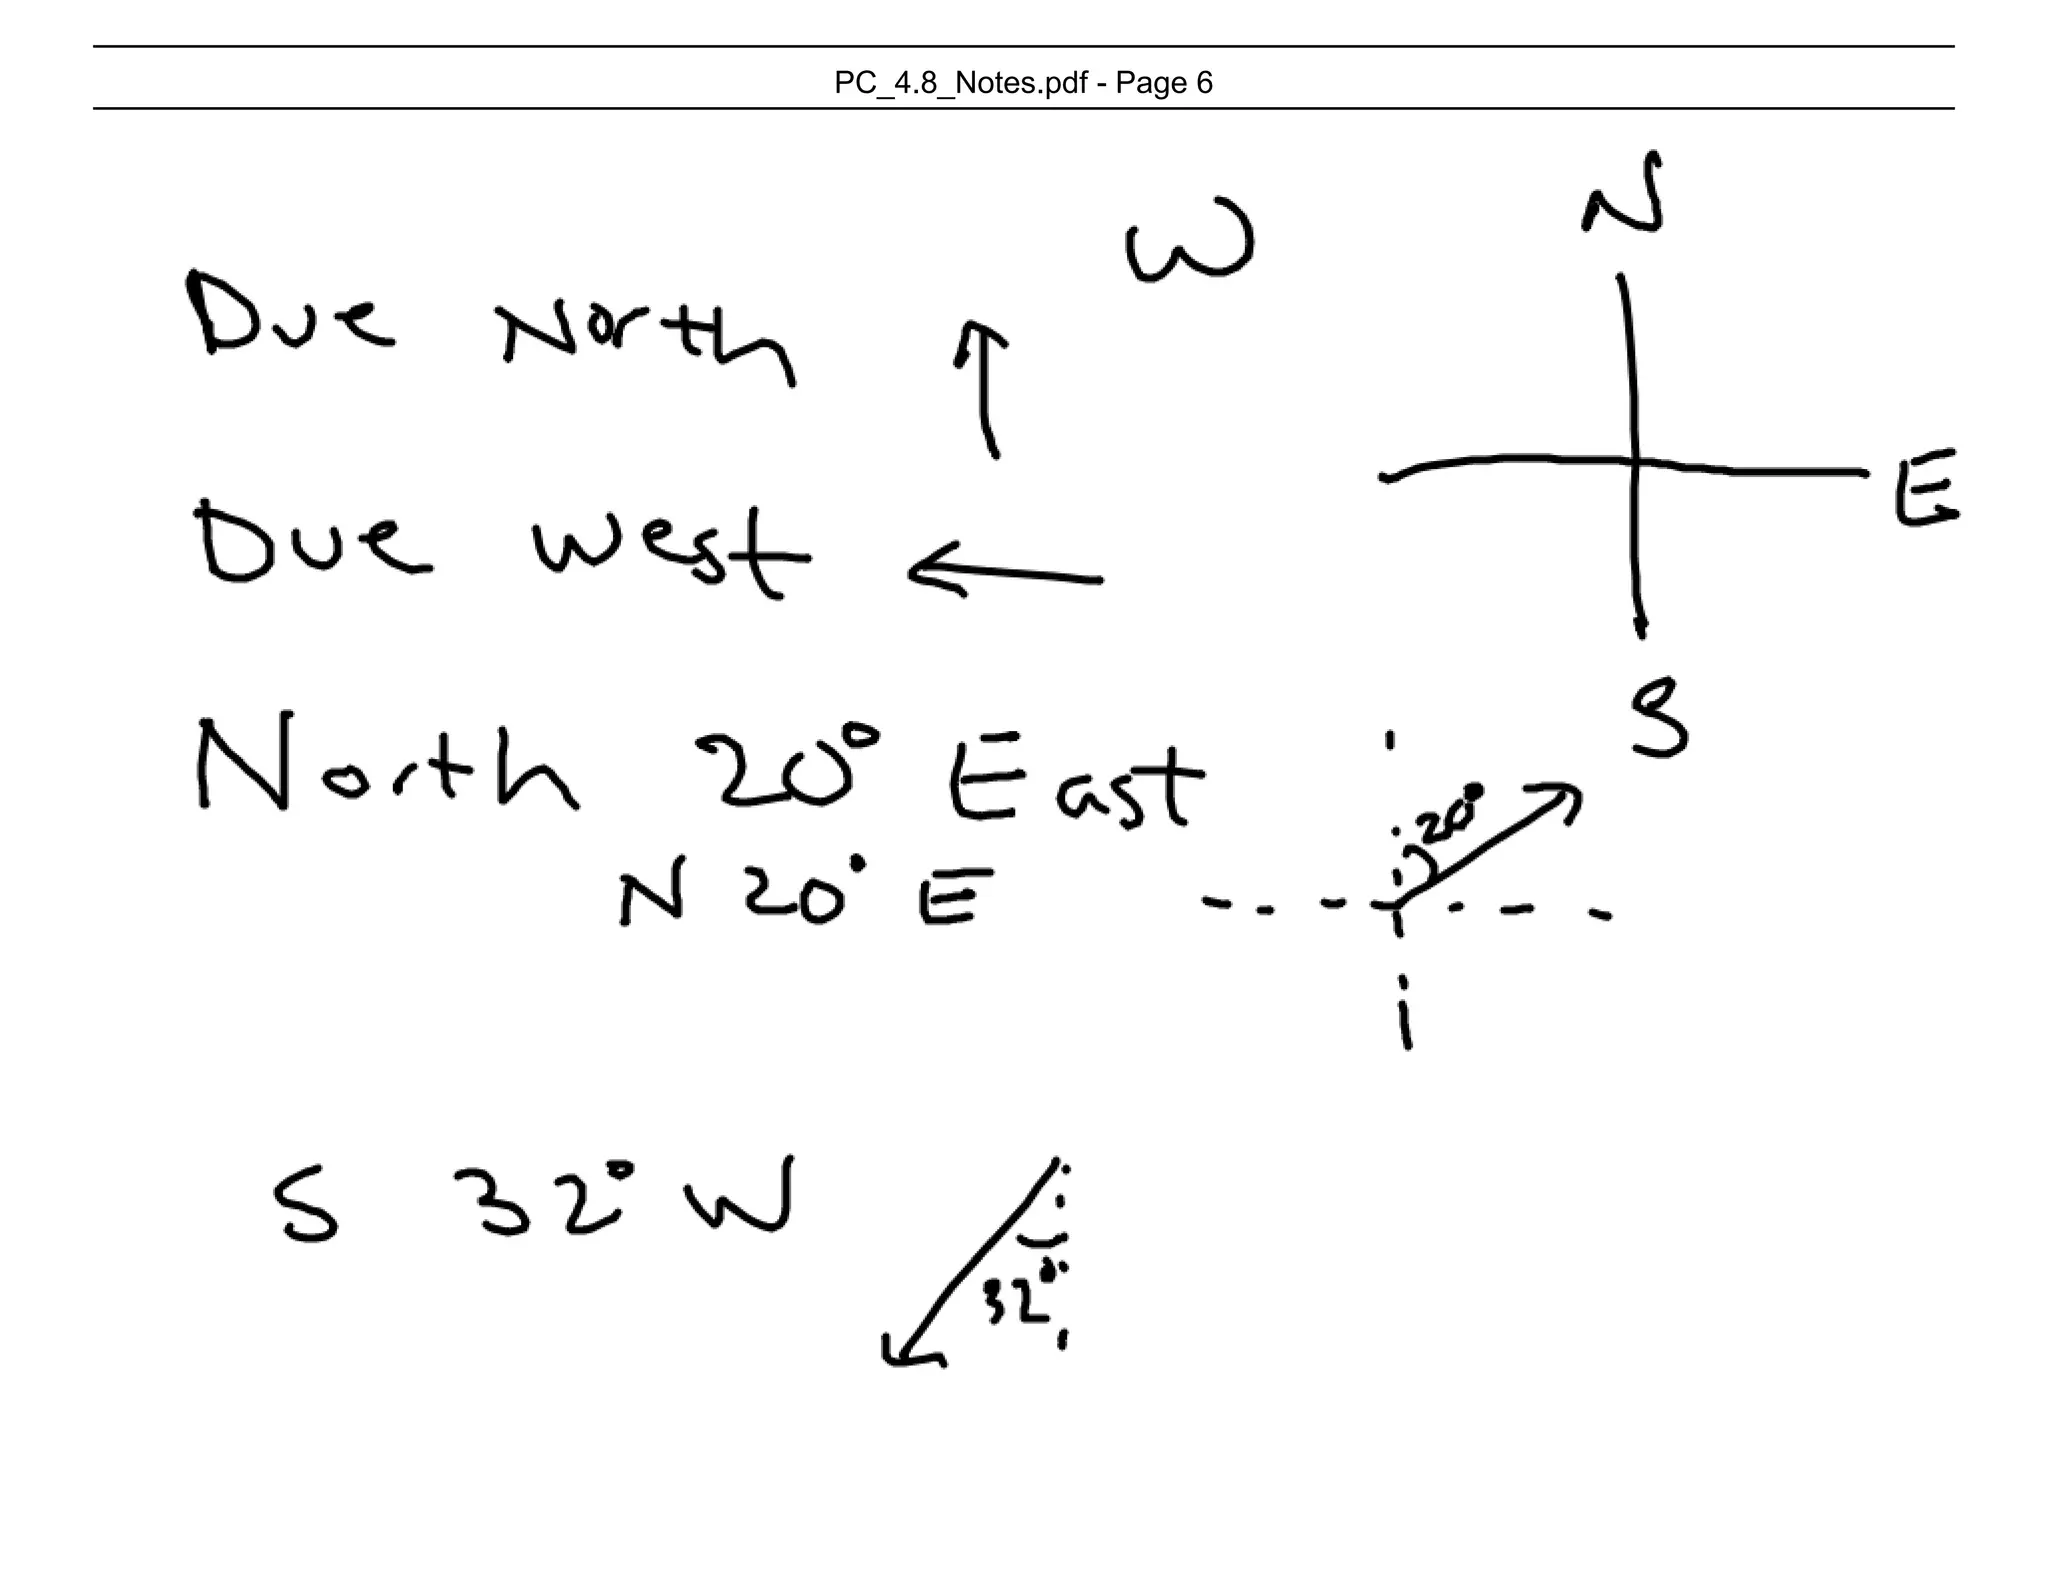 PC_4.8_Notes.pdf - Page 6
N
W
Due North
E
Due West
S
North 20° East
20°
N 20° E
S 32° W
32°